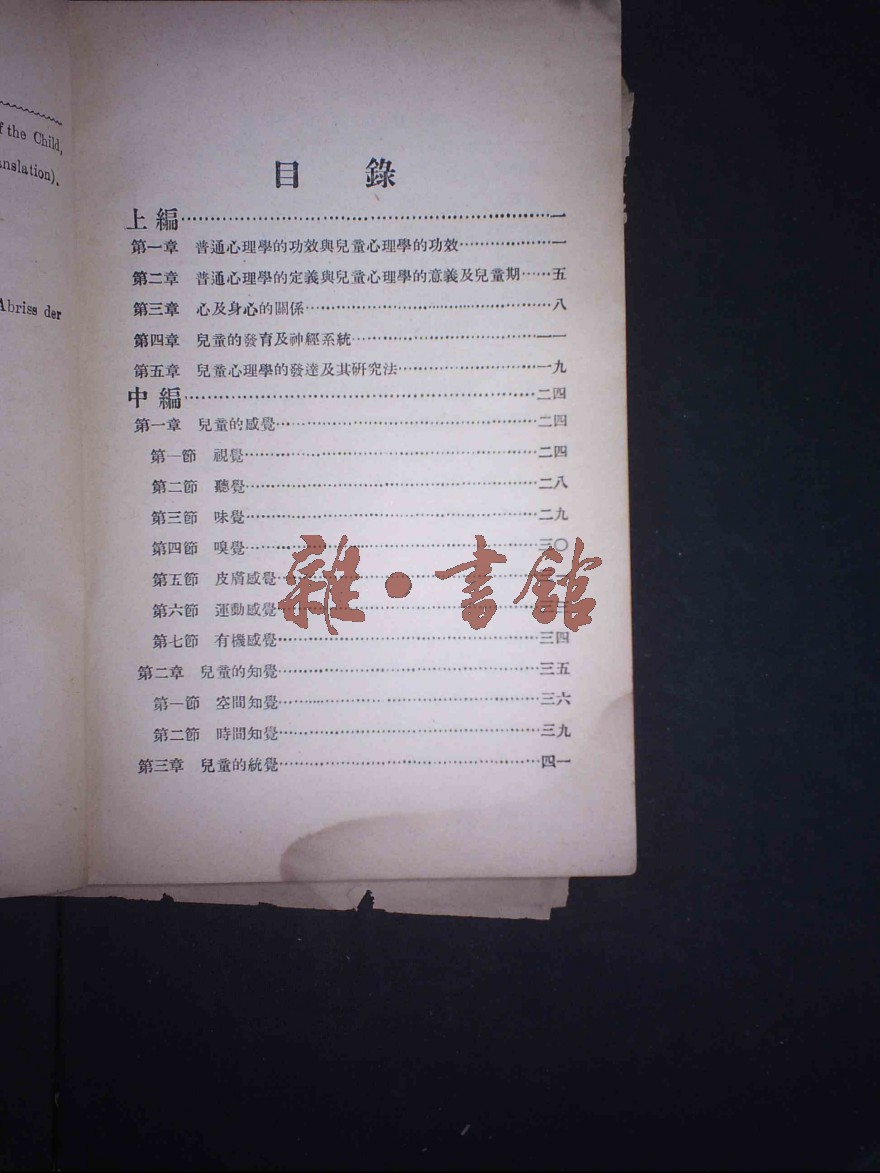 f the Child,
anslation).
Abriss der
目錄
上編……一
第一章 普通心理學的功效與兒童心理學的功效……一
第二章 普通心理學的定義與兒童心理學的意義及兒童期……五
第三章 心及身心的關係……八
第四章 兒童的發育及神經系統……一一
第五章 兒童心理學的發達及其研究法……一九
中編……二四
第一章 兒童的感覺……二四
第一節 視覺……二四
第二節 聽覺……二八
第三節 味覺……二九
第四節 嗅覺……三〇
第五節 皮膚感覺……
第六節 運動感覺……
第七節 有機感覺……三四
第二章 兒童的知覺……三五
第一節 空間知覺……三六
第二節 時間知覺……三九
第三章 兒童的統覺……四一
雜·書館